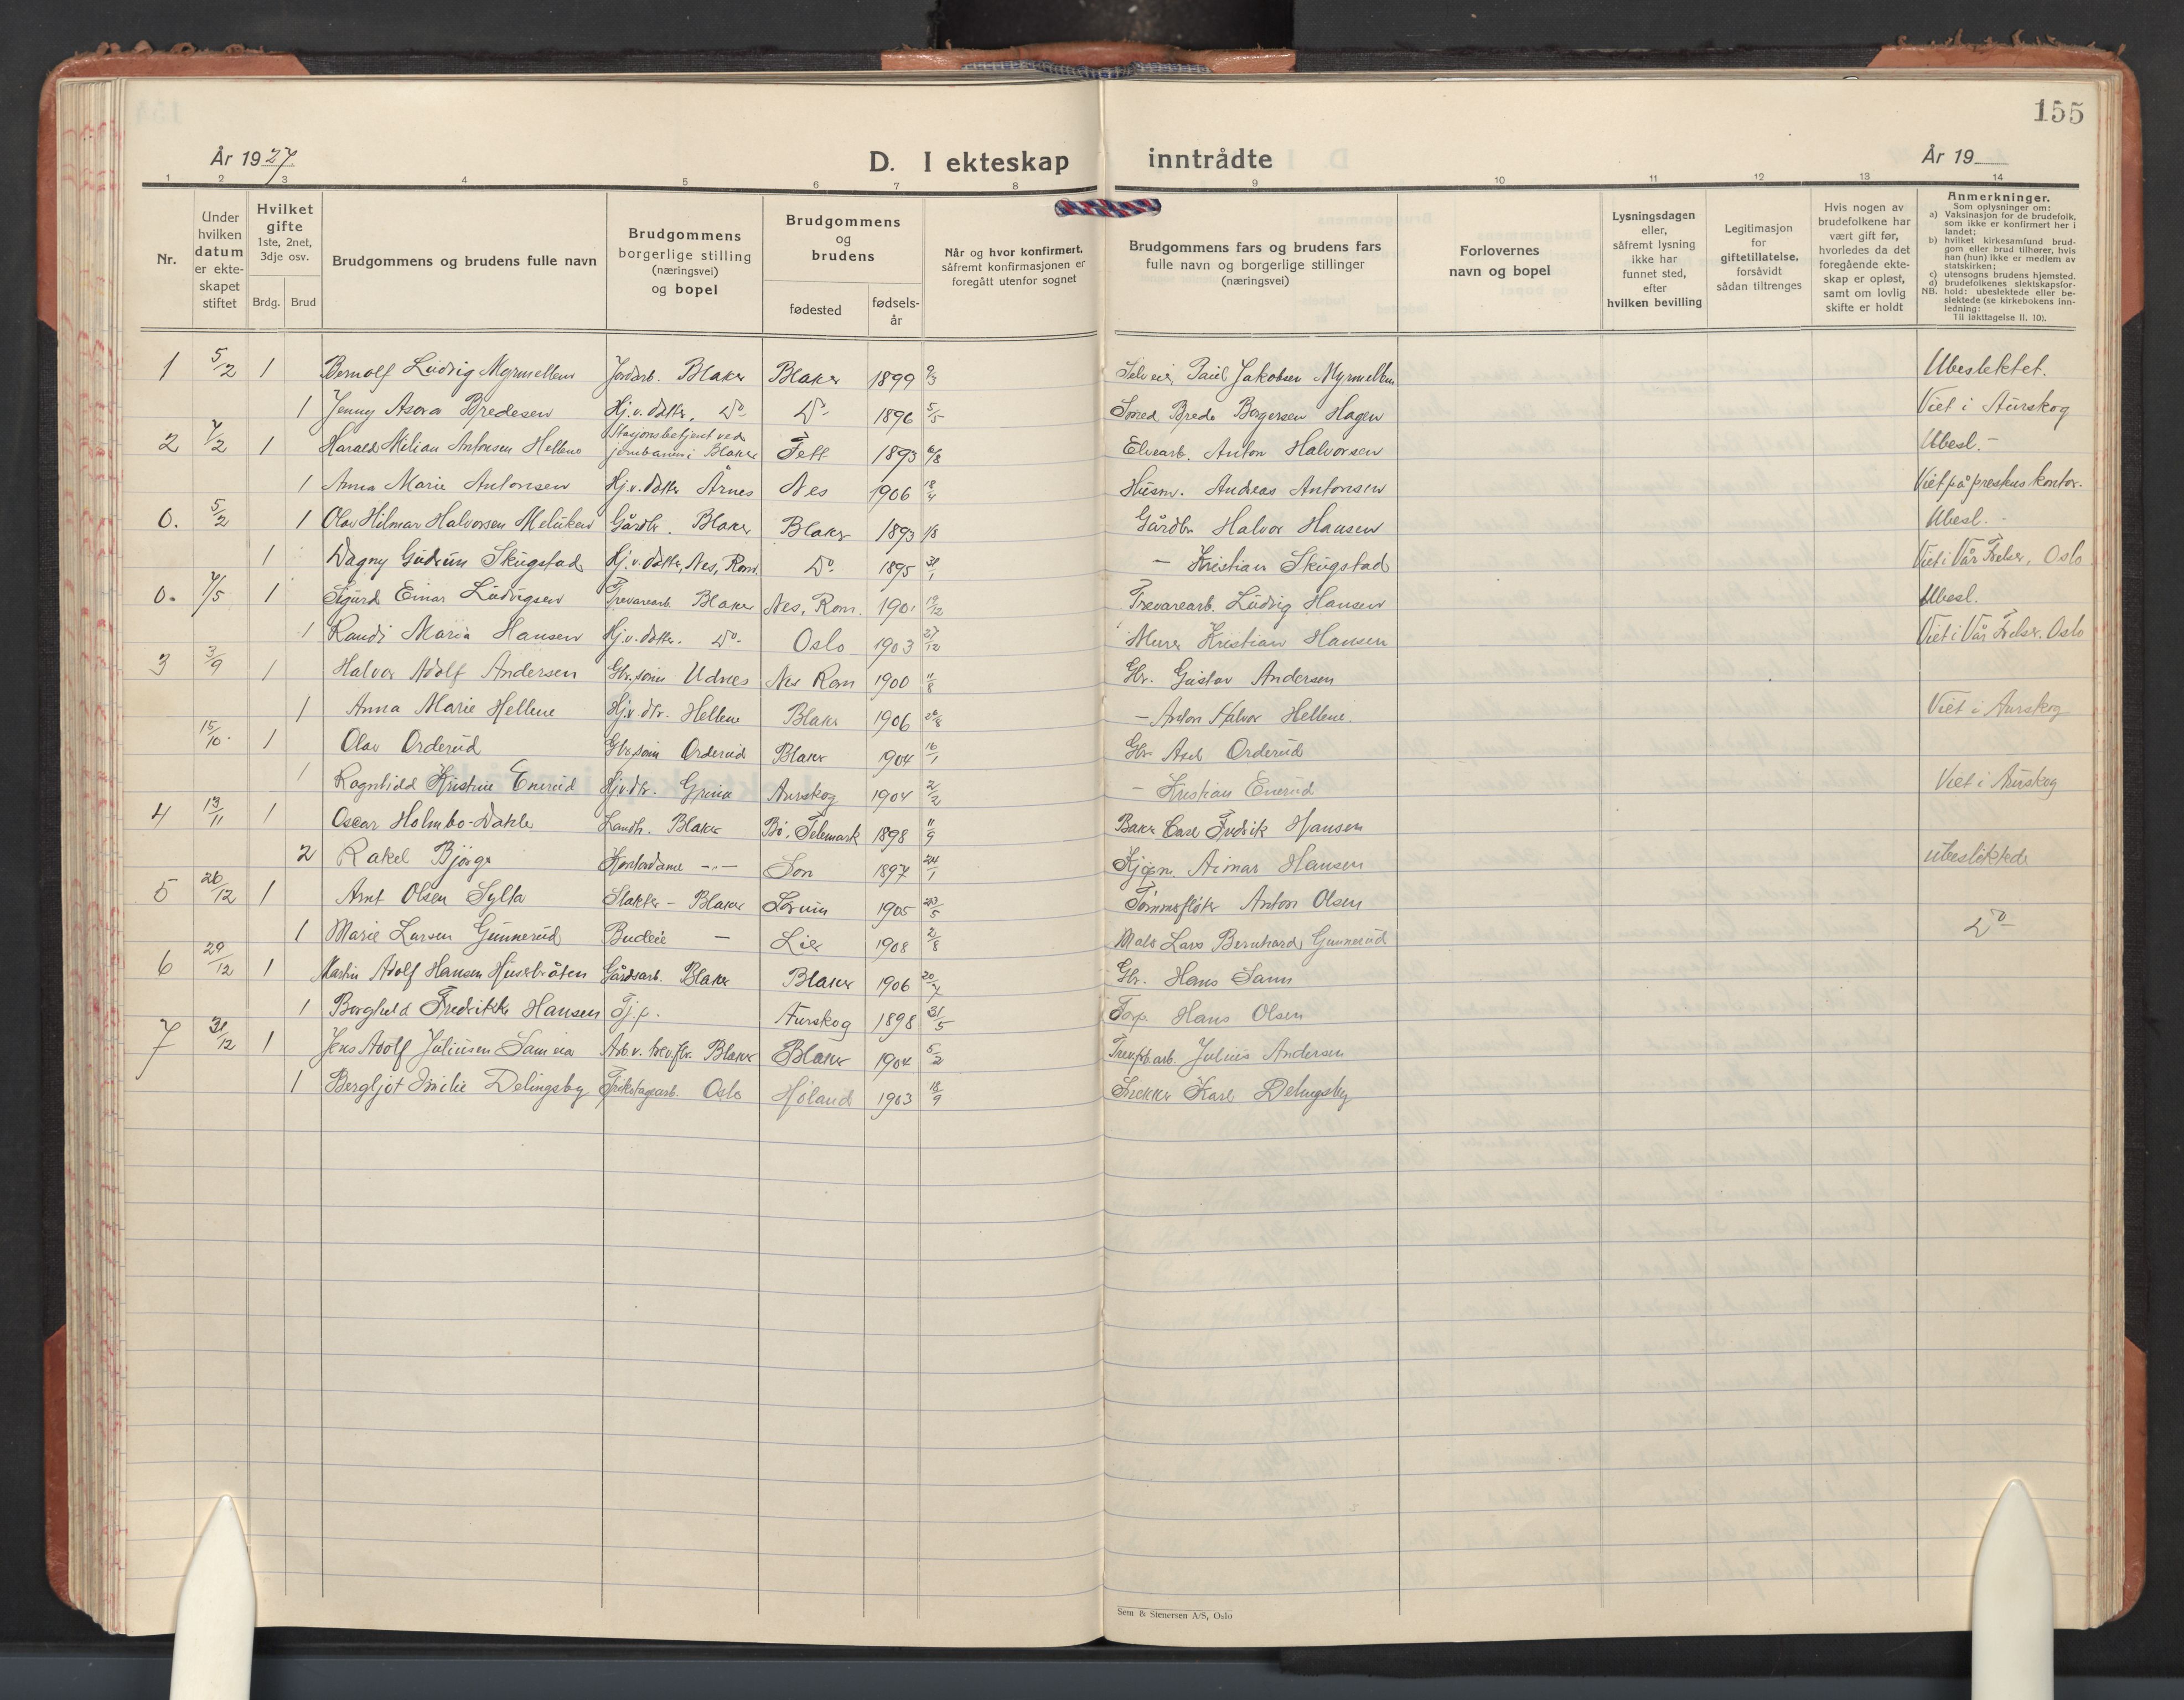 155
År 1927.
D. I ekteskap inntrådte
År 19
1 2 3 4 5 6 7 8 9 10 11 12 13 14
Nr.
Under hvilken datum er ekteskapet stiftet
Hvilket gifte 1ste, 2net, 3dje osv.
Brdg. Brud
Brudgommens og brudens fulle navn
Brudgommens borgerlige stilling (næringsvei) og bopel
Brudgommens og brudens
fødested
fødsels-år
Når og hvor konfirmert, såfremt konfirmasjonen er foregått utenfor sognet
Brudgommens fars og brudens fars fulle navn og borgerlige stillinger (næringsvei)
Forlovernes navn og bopel
Lysningsdagen eller, såfremt lysning ikke har funnet sted, efter hvilken bevilling
Legitimasjon for giftetillatelse, forsåvidt sådan tiltrenges
Hvis nogen av brudefolkene har vært gift før, hvorledes da det foregående ekte-skap er opløst, samt om lovlig skifte er holdt
Anmerkninger.
Som oplysninger om:
a) Vaksinasjon for de brudefolk, som ikke er konfirmert her i landet;
b) hvilket kirkesamfund brud-gom eller brud tilhører, hvis han (hun) ikke er medlem av statskirken;
c) utensogns brudens hjemsted.
d) brudefolkenes slektskapsfor-hold: ubeslektede eller be-slektede (se kirkebokens inn-ledning:
NB.
Til iakttagelse II. 10).
1 5/2 1 Bernolf Ludvig Myrmellem Jordarb. Blaker Blaker 1899 9/3 Selveier Paul Jakobsen Myrmellem Ubeslektet.
1 Jenny Asora Bredesen Hj.v. datter. Do Do 1896 5/5 Smed Brede Borgersen Hagen Viet i Aurskog
2 7/2 1 Harald Milian Antonsen Hellene Stasjonsbetjent ved jernbanen i Blaker Fett 1893 6/8 Elvearb. Anton Halvorsen Ubesl.-
1 Anna Marie Antonsen Hj.v. datter Årnes Nes 1906 18/4 Husm. Andreas Antonsen Viet på prestens kontor.
0. 5/2 1 Olav Hilmar Halvorsen Meliken Gårdbr. Blaker Blaker 1893 1/8 Gårdbr. Halvor Hansen Ubesl.-
1 Dagny Gudrun Skugstad Hj.v. datter, Nes, Rom. Do 1895 31/1 - Kristian Skugstad Viet i Vår Frelser, Oslo
0. 7/5 1 Sigurd Einar Ludvigsen Trevarearb. Blaker Nes, Rom. 1901 19/12 Trevarearb. Ludvig Hansen Ubesl.
1 Randi Maria Hansen Hj.v. datter. Do Oslo 1903 27/12 Murer Kristian Hansen Viet i Vår Frelser, Oslo
3 3/9 1 Halvor Adolf Andersen Gbr.sønn Udnes Nes Rom 1900 11/8 Gbr. Gustav Andersen
1 Anna Marie Hellene Hj.v.dtr. Hellene Blaker 1906 26/8 - Anton Halvor Hellene. Viet i Aurskog
15/10 1 Olav Orderud Gbr.sønn Orderud Blaker 1904 16/1 Gbr. Axel Orderud
1 Ragnhild Kristine Enerud Hj.v.dtr. Aurskog 1904 2/2 - Kristian Enerud Viet i Aurskog
4 13/11 1 Oscar Holmbo-Dahle Landh. Blaker Bø, Telemark 1898 11/9 Baker Carl Fredrik Hansen
2 Rakel Bjørge Kontordame -"- Son 1897 24/1 Kjøpm. Aimar Hansen ubeslektede
5 26/12 1 Arnt Olsen Sylta Slakter - Blaker Sørum 1905 23/5 Tømmerfløter Anton Olsen
1 Marie Larsen Gunnerud Budeie - Lier 1908 2/8 Maler Lars Bernhard Gunnerud Do
6 29/12 1 Martin Adolf Hansen Husebråten Gårdsarb. Blaker Blaker 1906 20/7 Gbr. Hans Sann
1 Borghild Fredrikke Hansen Tj.p. Aurskog 1898 31/5 Torp. Hans Olsen
7 31/12 1 Jens Adolf Juliusen Arb. v. trev.fbr. Blaker Blaker 1904 5/2 Trev.fb.arb. Julius Andersen
1 Bergljot Emilie Delingsby Oslo Høland 1903 18/9 Snekker Karl Delingsby
Sem & Stenersen A/S, Oslo